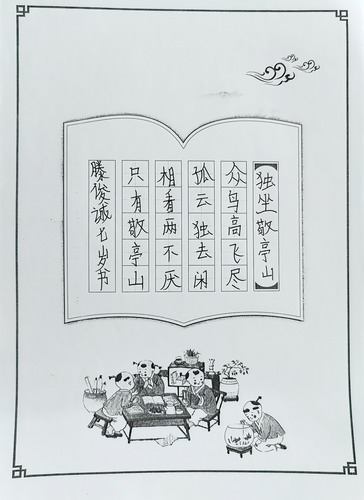 【独坐敬亭山】
众鸟高飞尽
孤云独去闲
相看两不厌
只有敬亭山
滕俊诚七岁书